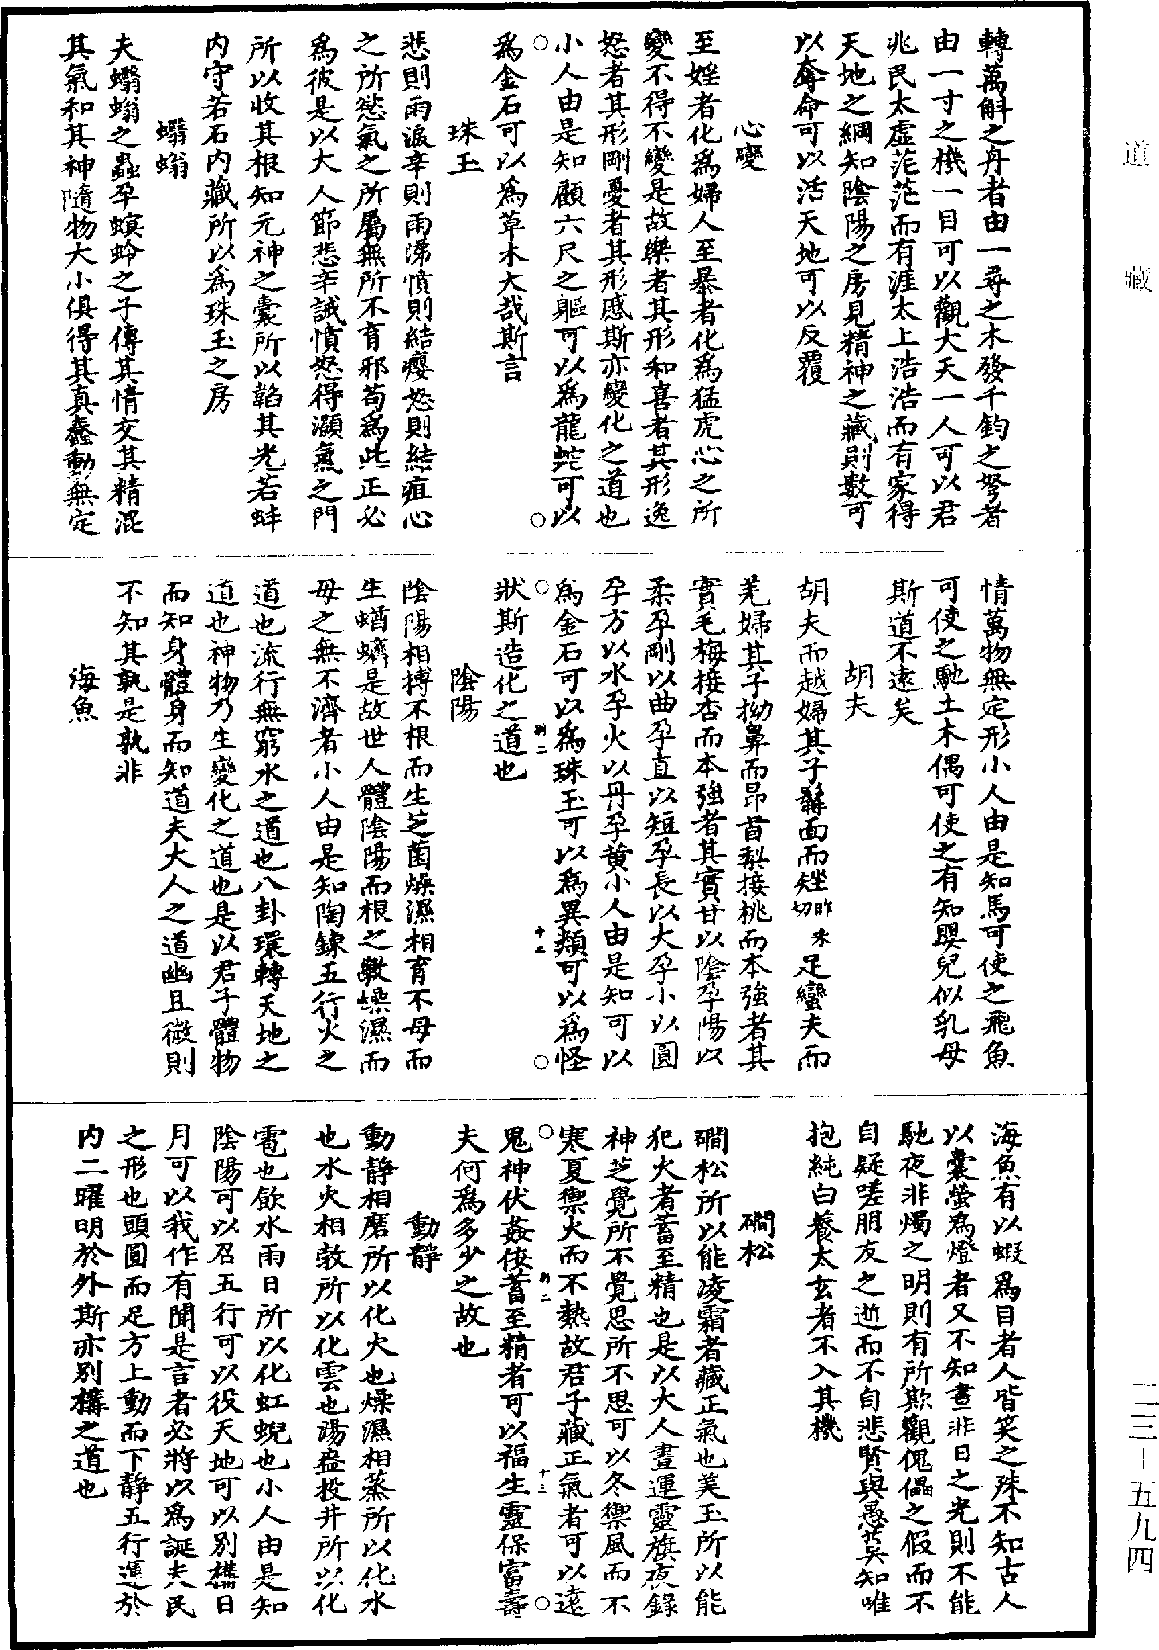 道藏
二三—五九四
轉萬斛之舟者由一尋之木發千鈞之弩者
由一寸之機一目可以觀大天一人可以君
兆民太虛茫茫而有涯太上浩浩而有家得
天地之綱知陰陽之房見精神之藏則數可
以奪命可以活天地可以反覆
心變
至婬者化爲婦人至暴者化爲猛虎心之所
變不得不變是故樂者其形和喜者其形逸
怒者其形剛憂者其形慼斯亦變化之道也
小人由是知顧六尺之軀可以爲龍蛇可以
爲金石可以爲草木大哉斯言
珠玉
悲則雨淚辛則雨涕憤則結癭怒則結疽心
之所慾氣之所屬無所不育邪苟爲此正必
爲彼是以大人節悲辛誡憤怒得灝氣之門
所以收其根知元神之囊所以韜其光若蚌
内守若石内藏所以爲珠玉之房
蠮螉
夫蠮螉之蟲孕螟蛉之子傳其情交其精混
其氣和其神隨物大小俱得其真蠢動無定
情萬物無定形小人由是知馬可使之飛魚
可使之馳土木偶可使之有知嬰兒似乳母
斯道不遠矣
胡夫
胡夫而越婦其子髯面而矬昨禾切足蠻夫而
羌婦其子拗鼻而昂首梨接桃而本強者其
實毛梅接杏而本強者其實甘以陰孕陽以
柔孕剛以曲孕直以短孕長以大孕小以圓
孕方以水孕火以丹孕黄小人由是知可以
爲金石可以爲珠玉可以爲異類可以爲怪
狀斯造化之道也
陰陽
陰陽相搏不根而生芝菌燥濕相育不母而
生蝤蠐是故世人體陰陽而根之斅燥濕而
母之無不濟者小人由是知陶鍊五行火之
道也流行無窮水之道也八卦環轉天地之
道也神物乃生變化之道也是以君子體物
而知身體身而知道夫大人之道幽且微則
不知其孰是孰非
海魚
海魚有以蝦爲目者人皆笑之殊不知古人
以囊螢爲燈者又不知晝非日之光則不能
馳夜非燭之明則有所欺觀傀儡之假而不
自疑嗟朋友之逝而不自悲賢與愚莫知唯
抱純白養太玄者不入其機
磵松
磵松所以能凌霜者藏正氣也美玉所以能
犯火者蓄至精也是以大人晝運靈旗夜錄
神芝覺所不覺思所不思可以冬禦風而不
寒夏禦火而不熱故君子藏正氣者可以遠
鬼神伏姦佞蓄至精者可以福生靈保富壽
夫何爲多少之故也
動靜
動靜相磨所以化火也燥濕相蒸所以化水
也水火相勃所以化雲也湯盎投井所以化
雹也飲水雨日所以化虹蜺也小人由是知
陰陽可以召五行可以役天地可以別搆日
月可以我作有聞是言者必將以爲誕夫民
之形也頭圓而足方上動而下靜五行運於
内二曜明於外斯亦別搆之道也